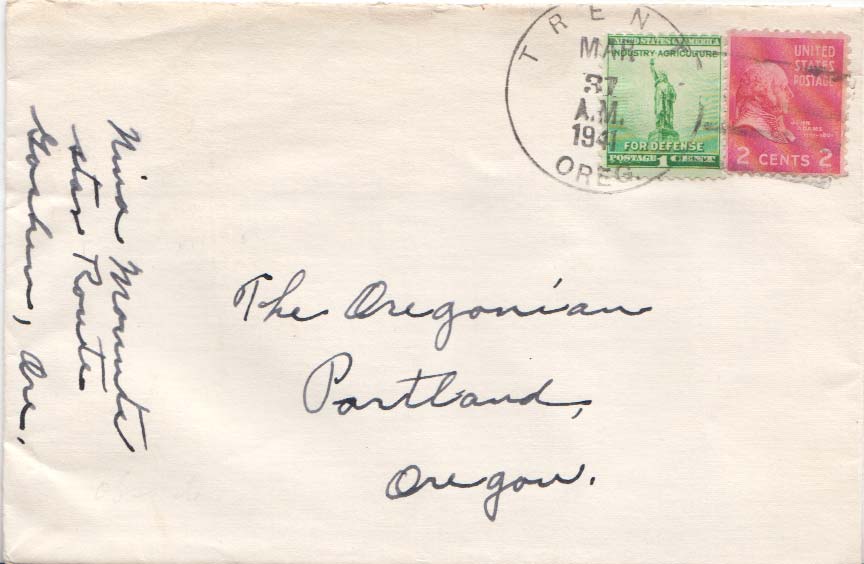 Nina Mounts
Star Route
Goshen, Ore.
TRENT
MAR
A.M.
1941
OREG.
UNITED STATES OF AMERICA
INDUSTRY·AGRICULTURE
FOR DEFENSE
POSTAGE 1 CENT
UNITED
STATES
POSTAGE
JOHN
ADAMS
2 CENTS 2
The Oregonian
Portland,
Oregon.